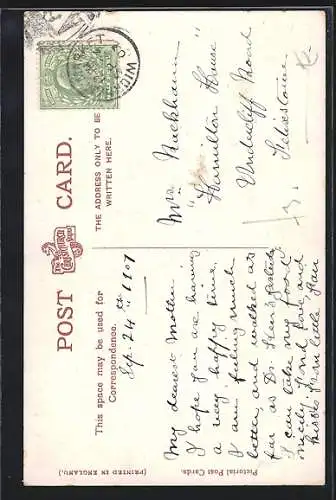 POST CARD.
THE ADDRESS ONLY TO BE
WRITTEN HERE.
This space may be used for
Correspondence.
Sep. 24th 1907
My dearest Mother.
I hope you are having
a very happy time.
I am feeling much
better, and walked as
far as Dr. yesterday
I can take my food
nicely. Fond love and
kisses from little
Mrs
"Hamilton House"
Undercliff Road
Felixstowe
(PRINTED IN ENGLAND.)
Pictorial Post Cards.